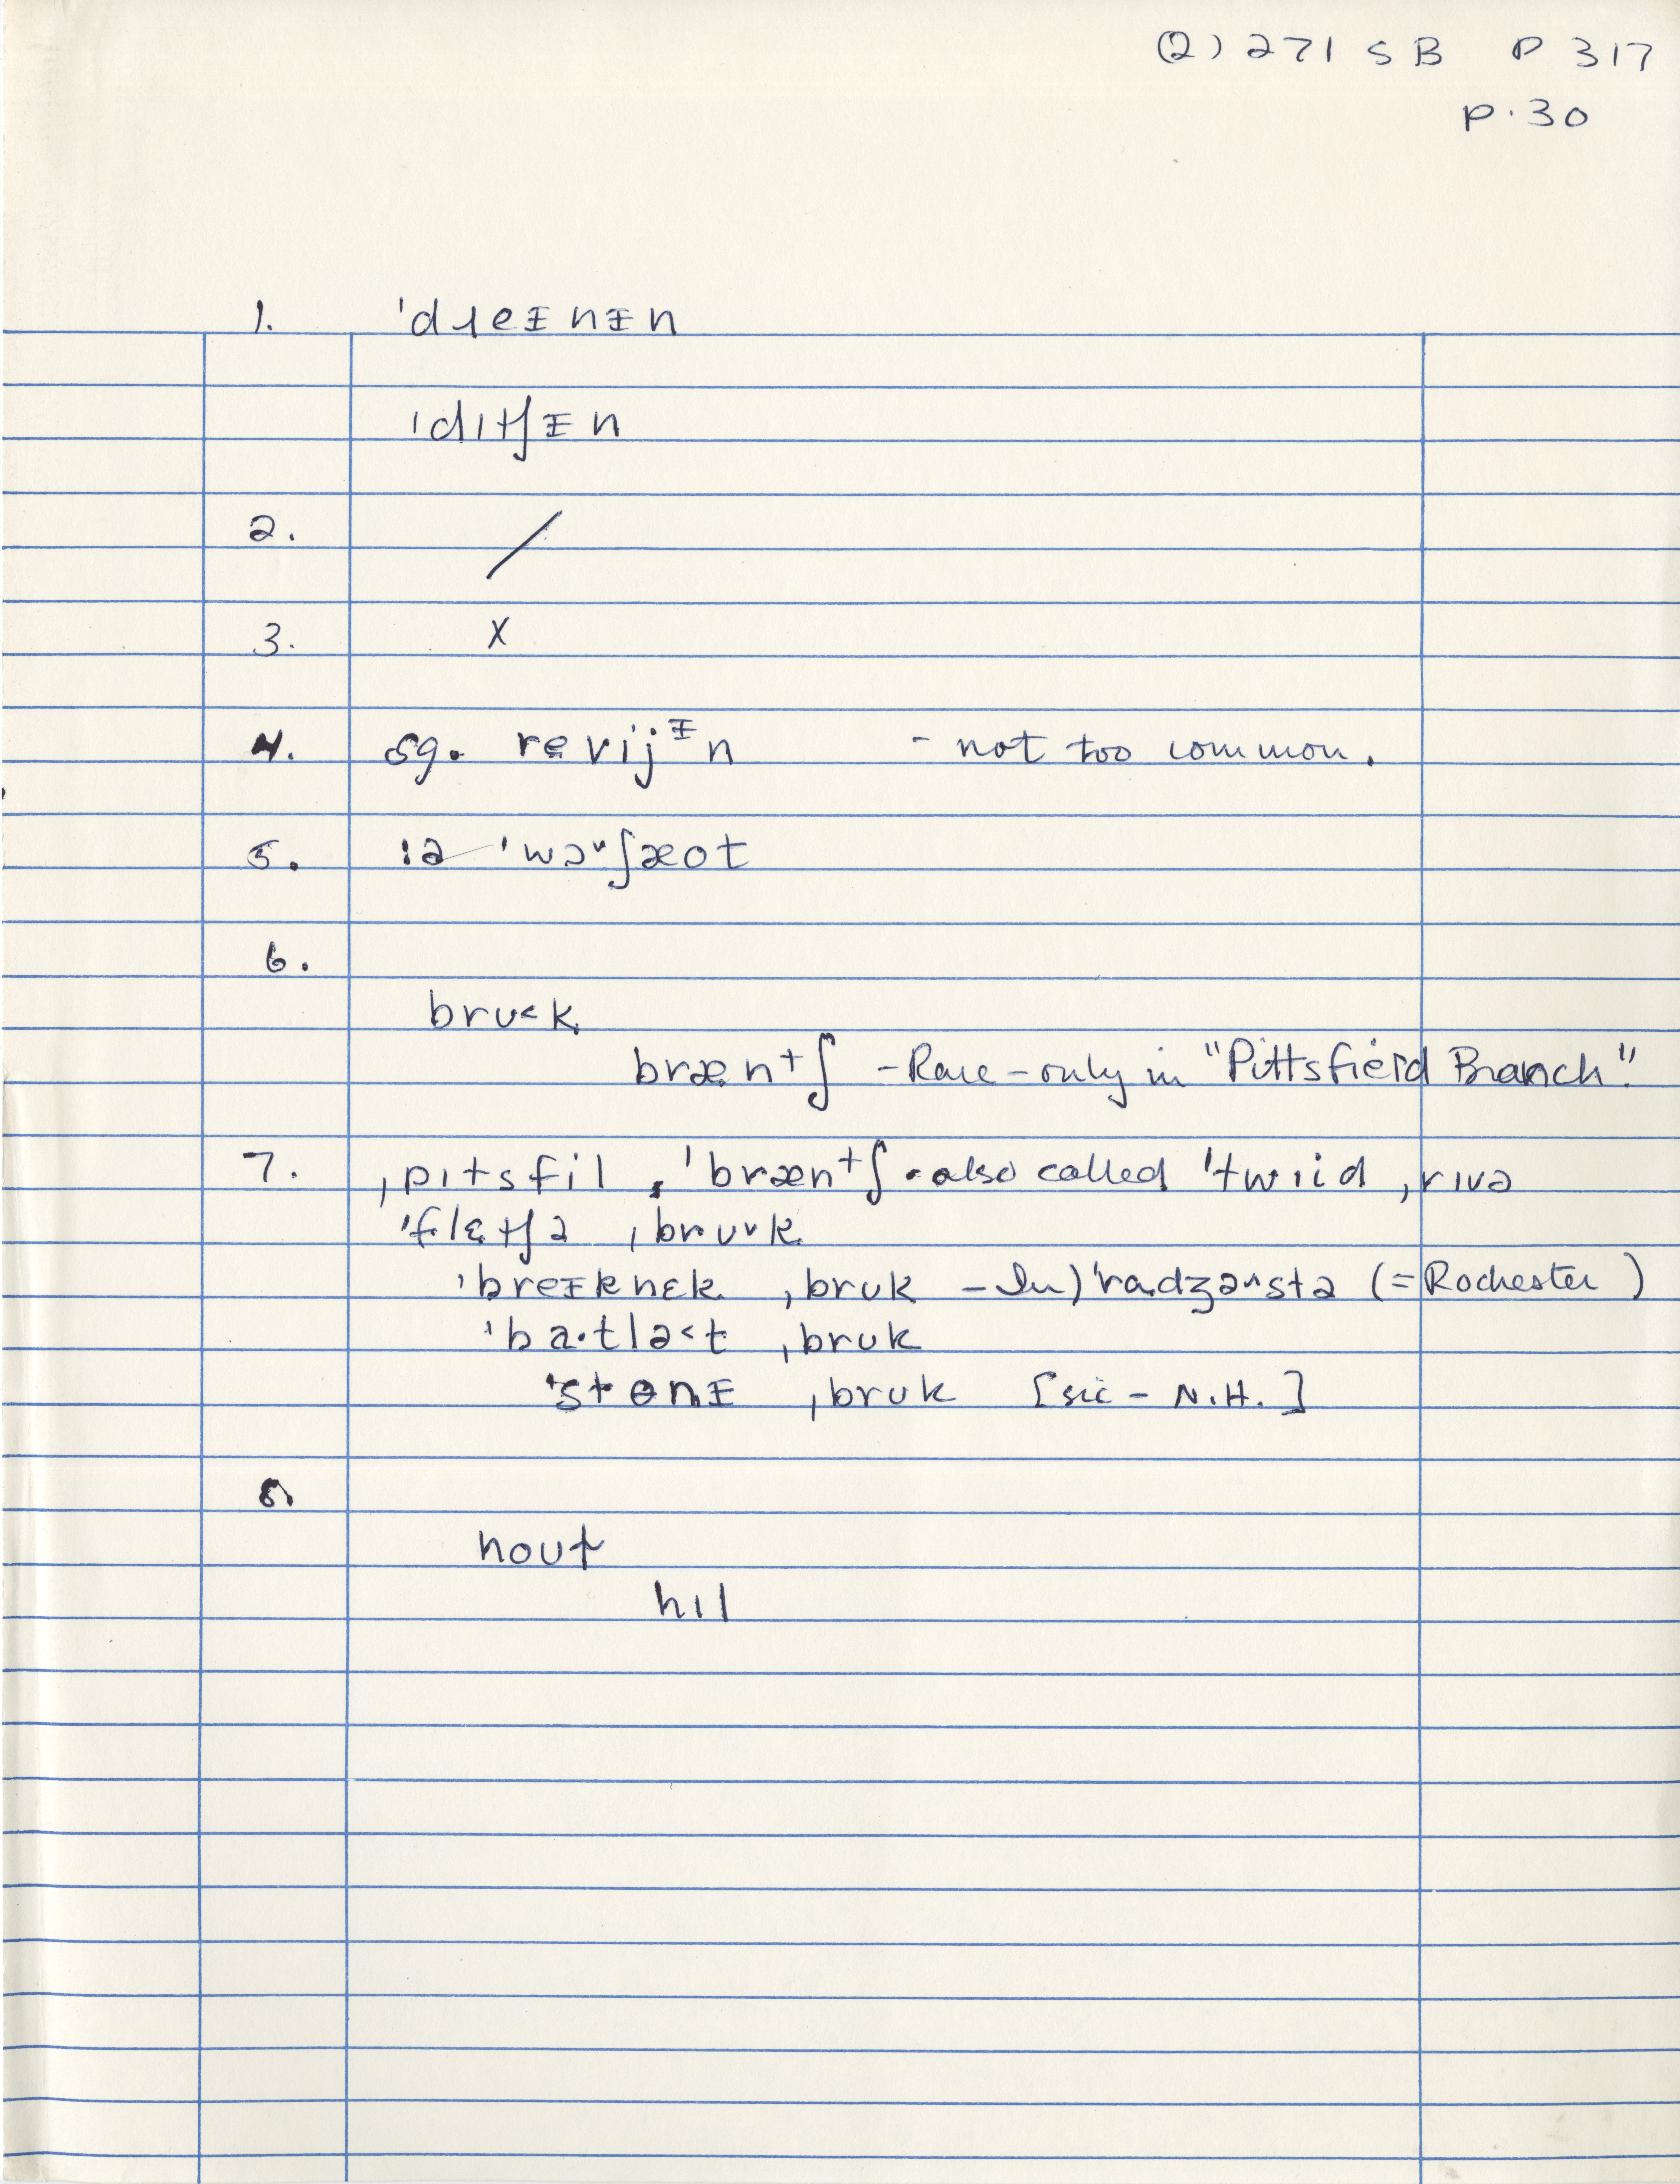 (2) 271 SB P 317
P. 30
1. ˈdɹeᵻnᵻn
ˈdɪtʃᵻn
2. /
3. X
4. sg. revijᵻn - not too common.
5. :ə ˈwɔ˅ʃæot
6.
brʊ˂k
bræntʃ - Rare - only in "Pittsfield Branch".
7. ˌpɪtsfil ˈbræntʃ - also called ˈtwiid ˌrɪvə
ˈflɛtʃə ˌbrʊ˅k
ˈbreᵻknɛk ˌbrʊk - In) ˈradʒə˄stə (= Rochester)
ˈba·tlə˂t ˌbrʊk
ˈstɵnᵻ ˌbrʊk [sic - N.H.]
8.
noʊt
hɪl